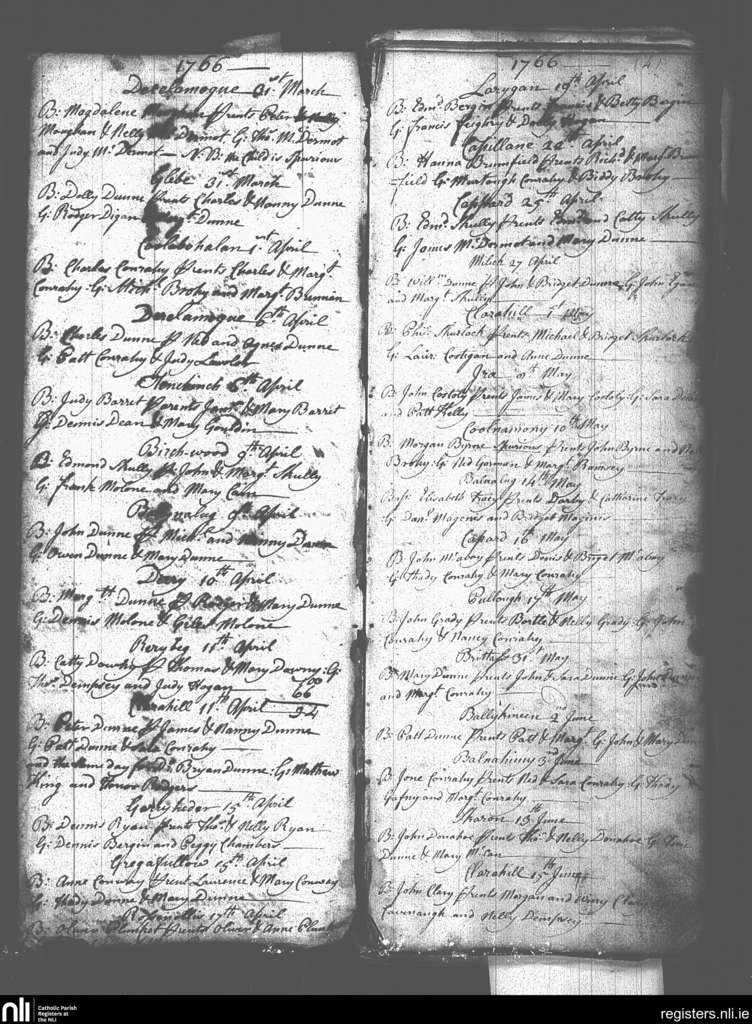 1766
Derelamogue 31st March
B: Magdalene Maughan Prents Peter & Nelly
Maughan & Nelly Mc Dermot, G: Thos. Mc. Dermot
and Judy Mc. Dermot — N.B. the Child is Spurious
Glebe 31st March
B: Dolly Dunne Prents Charles & Nanny Dunne
G: Rodger Digan Dunne
Coolebohalan 1st April
B: Charles Conrahy Prents Charles & Margt.
Conrahy. G: Michl. Brohy and Margt. Brennan
Derelamogue 6th April
B: Charles Dunne P Ned and Agnes Dunne
G: Patt Conrahy & Judy Lawlor
6th April
B: Judy Barret Parents James & Mary Barrit
G: Dennis Dean & Mary Gouldin
Birch-wood 9th April
B: Edmond Skully P John & Margt. Skully
G: Frank Molone and Mary Cain
9th April
B: John Dunne P Michl. and Nanny Dunne
G: Owen Dunne & Mary Dunne
Deery 10th April
B: Margtt. Dunne P Rodger & Mary Dunne
G: Dennis Molone & Giles Molone
Rerybeg 11th April
B: Catty Downy P Thomas & Mary Downy: G:
Thos. Dempsey and Judy Hogan
66
Clarahill 11th April 34
B: Peter Dunne P James & Nanny Dunne
G: Patt Dunne & Sara Conrahy
and the same day Bryan Dunne: G: Mathew
King and Honor Rodgers
Garryheder 15th April
B: Dennis Ryan Prents Thos. & Nelly Ryan
G: Dennis Bergin and Peggy Chambers
Gregafullow 15th April
B: Anne Conway Prent Laurence & Mary Conway
G: Thady Dunne & Mary Dunne
17th April
B: Oliver Plunket Prents Oliver & Anne Plunket
1766 (4)
Larygan 19th April
B: Edmd. Bergin Prents Francis & Betty Bergin
G: Francis Feighry & Hogan
Capullane 22d April
B: Hanna Brumfield Prents Richd. & Mary Brum
-field G: Murtaugh Conrahy & Biddy Brohy
Cappard 25th April
B: Edmd. Skully Prents Edmd and Catty Skully
G: James Mc. Dermot and Mary Dunne
Milick 27 April
B Willm Dunne P John & Bridget Dunne, G. John Egan
and Margt. Skully
Clarahill 1st May
B: Phil: Shurlock Prents Michael & Bridget Shurlock
G: Laur: Costigan and Anne Dunne
Ira 9th May
B: John Costoly Prents James & Mary Costoly G: Sara
and Patt Kelly
Coolnamony 10th May
B: Morgan Byrne Spurious Prents John Byrne and
Brohy: G: Ned Gorman & Margt. Ramsey
Balnalug 14th May
Bap. Elisabeth Prents Darby & Catharine
G: Danl: Magenis and Bridget Maginis
Capard 16 May
B John Mc.avoy Prents Denis & Briget Mc.avoy
G: Thady Conrahy & Mary Conrahy
Cullough 17th May
B: John Grady Prents Bartle & Nelly Grady. G: John
Conrahy & Nancy Conrahy
Brittas 31st May
B: Mary Dunne Prents John & Sara Dunne G: John
and Margt. Conrahy
Ballykineen 2nd June
B: Patt Dunne Prents Patt & Marg: G: John & Mary
Balnahimy 3rd June
B: Jone Conrahy Prents Ned & Sara Conrahy G: Thady
Gafny and Margt. Conrahy
Sharon 13th June
B: John Donahoe Prents Thos. & Nelly Donahoe G:
Dunne & Mary McCan
Clarahill 15th June
B: John Clary Prents Morgan and Winy
Cavenaugh and Nelly Dempsey
nli Catholic Parish
Registers at
the NLI
registers.nli.ie